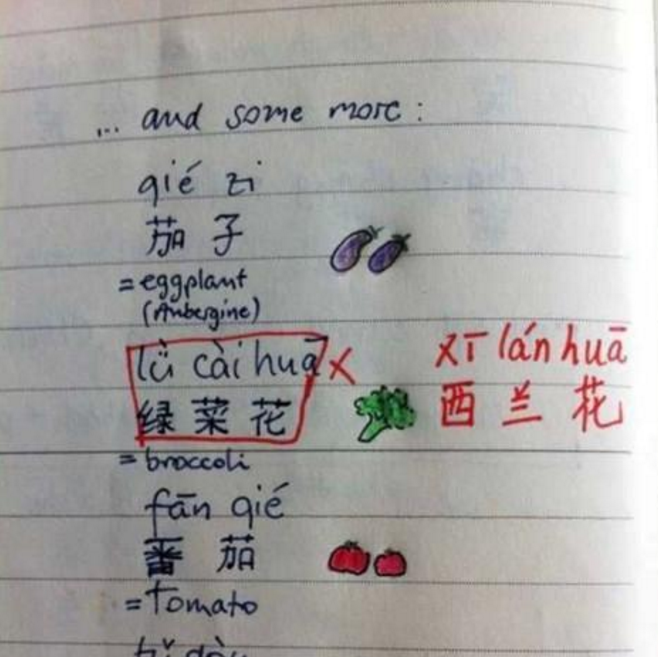 ... and some more:
qié zi
茄 子
= eggplant
(Aubergine)
lǜ cài huā x
绿 菜 花
xī lán huā
西 兰 花
= broccoli
fān qié
番 茄
= Tomato